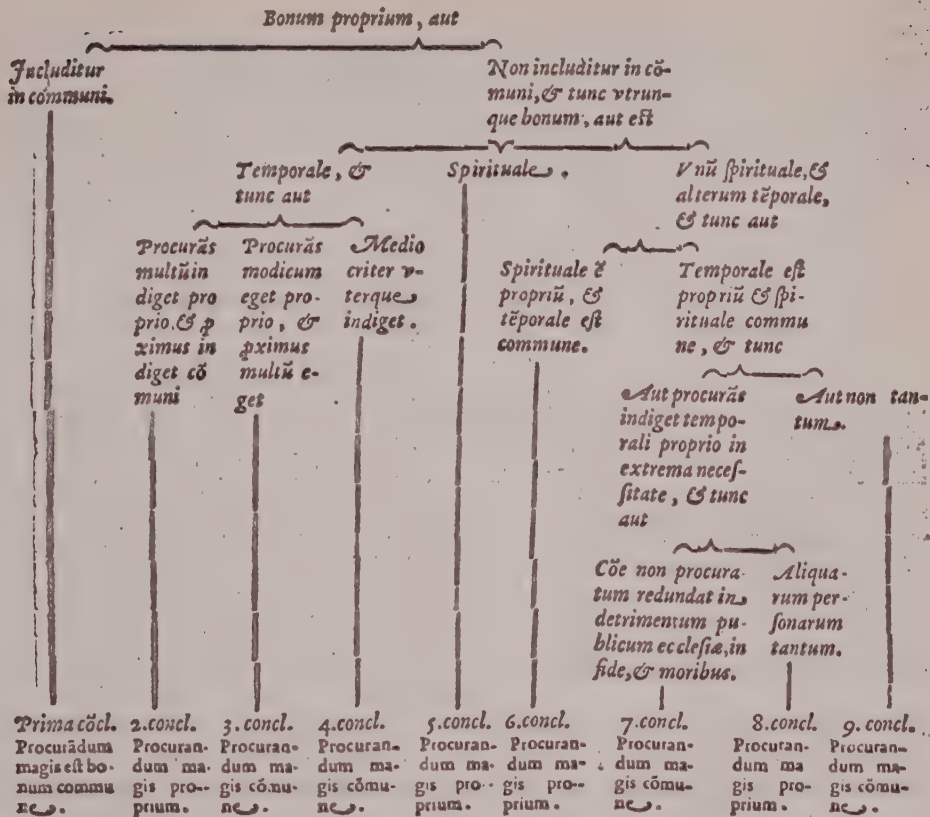 Bonum proprium, aut
Includitur
in communi.
Non includitur in cõ-
muni, & tunc vtrun-
que bonum, aut est
Temporale, &
tunc aut
Spirituale.
Vnũ spirituale, &
alterum tẽporale,
& tunc aut
Procurãs
multũ in
diget pro
prio. & ꝓ
ximus in
diget cõ
muni
Procurãs
modicum
eget pro-
prio, &
ꝓximus
multũ e-
get
Medio
criter v-
terque
indiget.
Spirituale ẽ
propriũ, &
tẽporale est
commune.
Temporale est
propriũ & spi-
rituale commu
ne, & tunc
Aut procurãs
indiget tempo-
rali proprio in
extrema neces-
sitate, & tunc
aut
Aut non tan-
tum.
Cõe non procura-
tum redundat in
detrimentum pu-
blicum ecclesiæ, in
fide, & moribus.
Aliqua-
rum per-
sonarum
tantum.
Prima cõcl.
Procurãdum
magis est bo-
num commu
ne.
2. concl.
Procuran-
dum ma-
gis pro-
prium.
3. concl.
Procuran-
dum ma-
gis cõmu-
ne.
4. concl.
Procuran-
dum ma-
gis cõmu-
ne.
5. concl.
Procuran-
dum ma-
gis pro-
prium.
6. concl.
Procuran-
dum ma-
gis pro-
prium.
7. concl.
Procuran-
dum ma-
gis cõmu-
ne.
8. concl.
Procuran-
dum ma
gis pro-
prium.
9. concl.
Procuran-
dum ma-
gis cõmu-
ne.